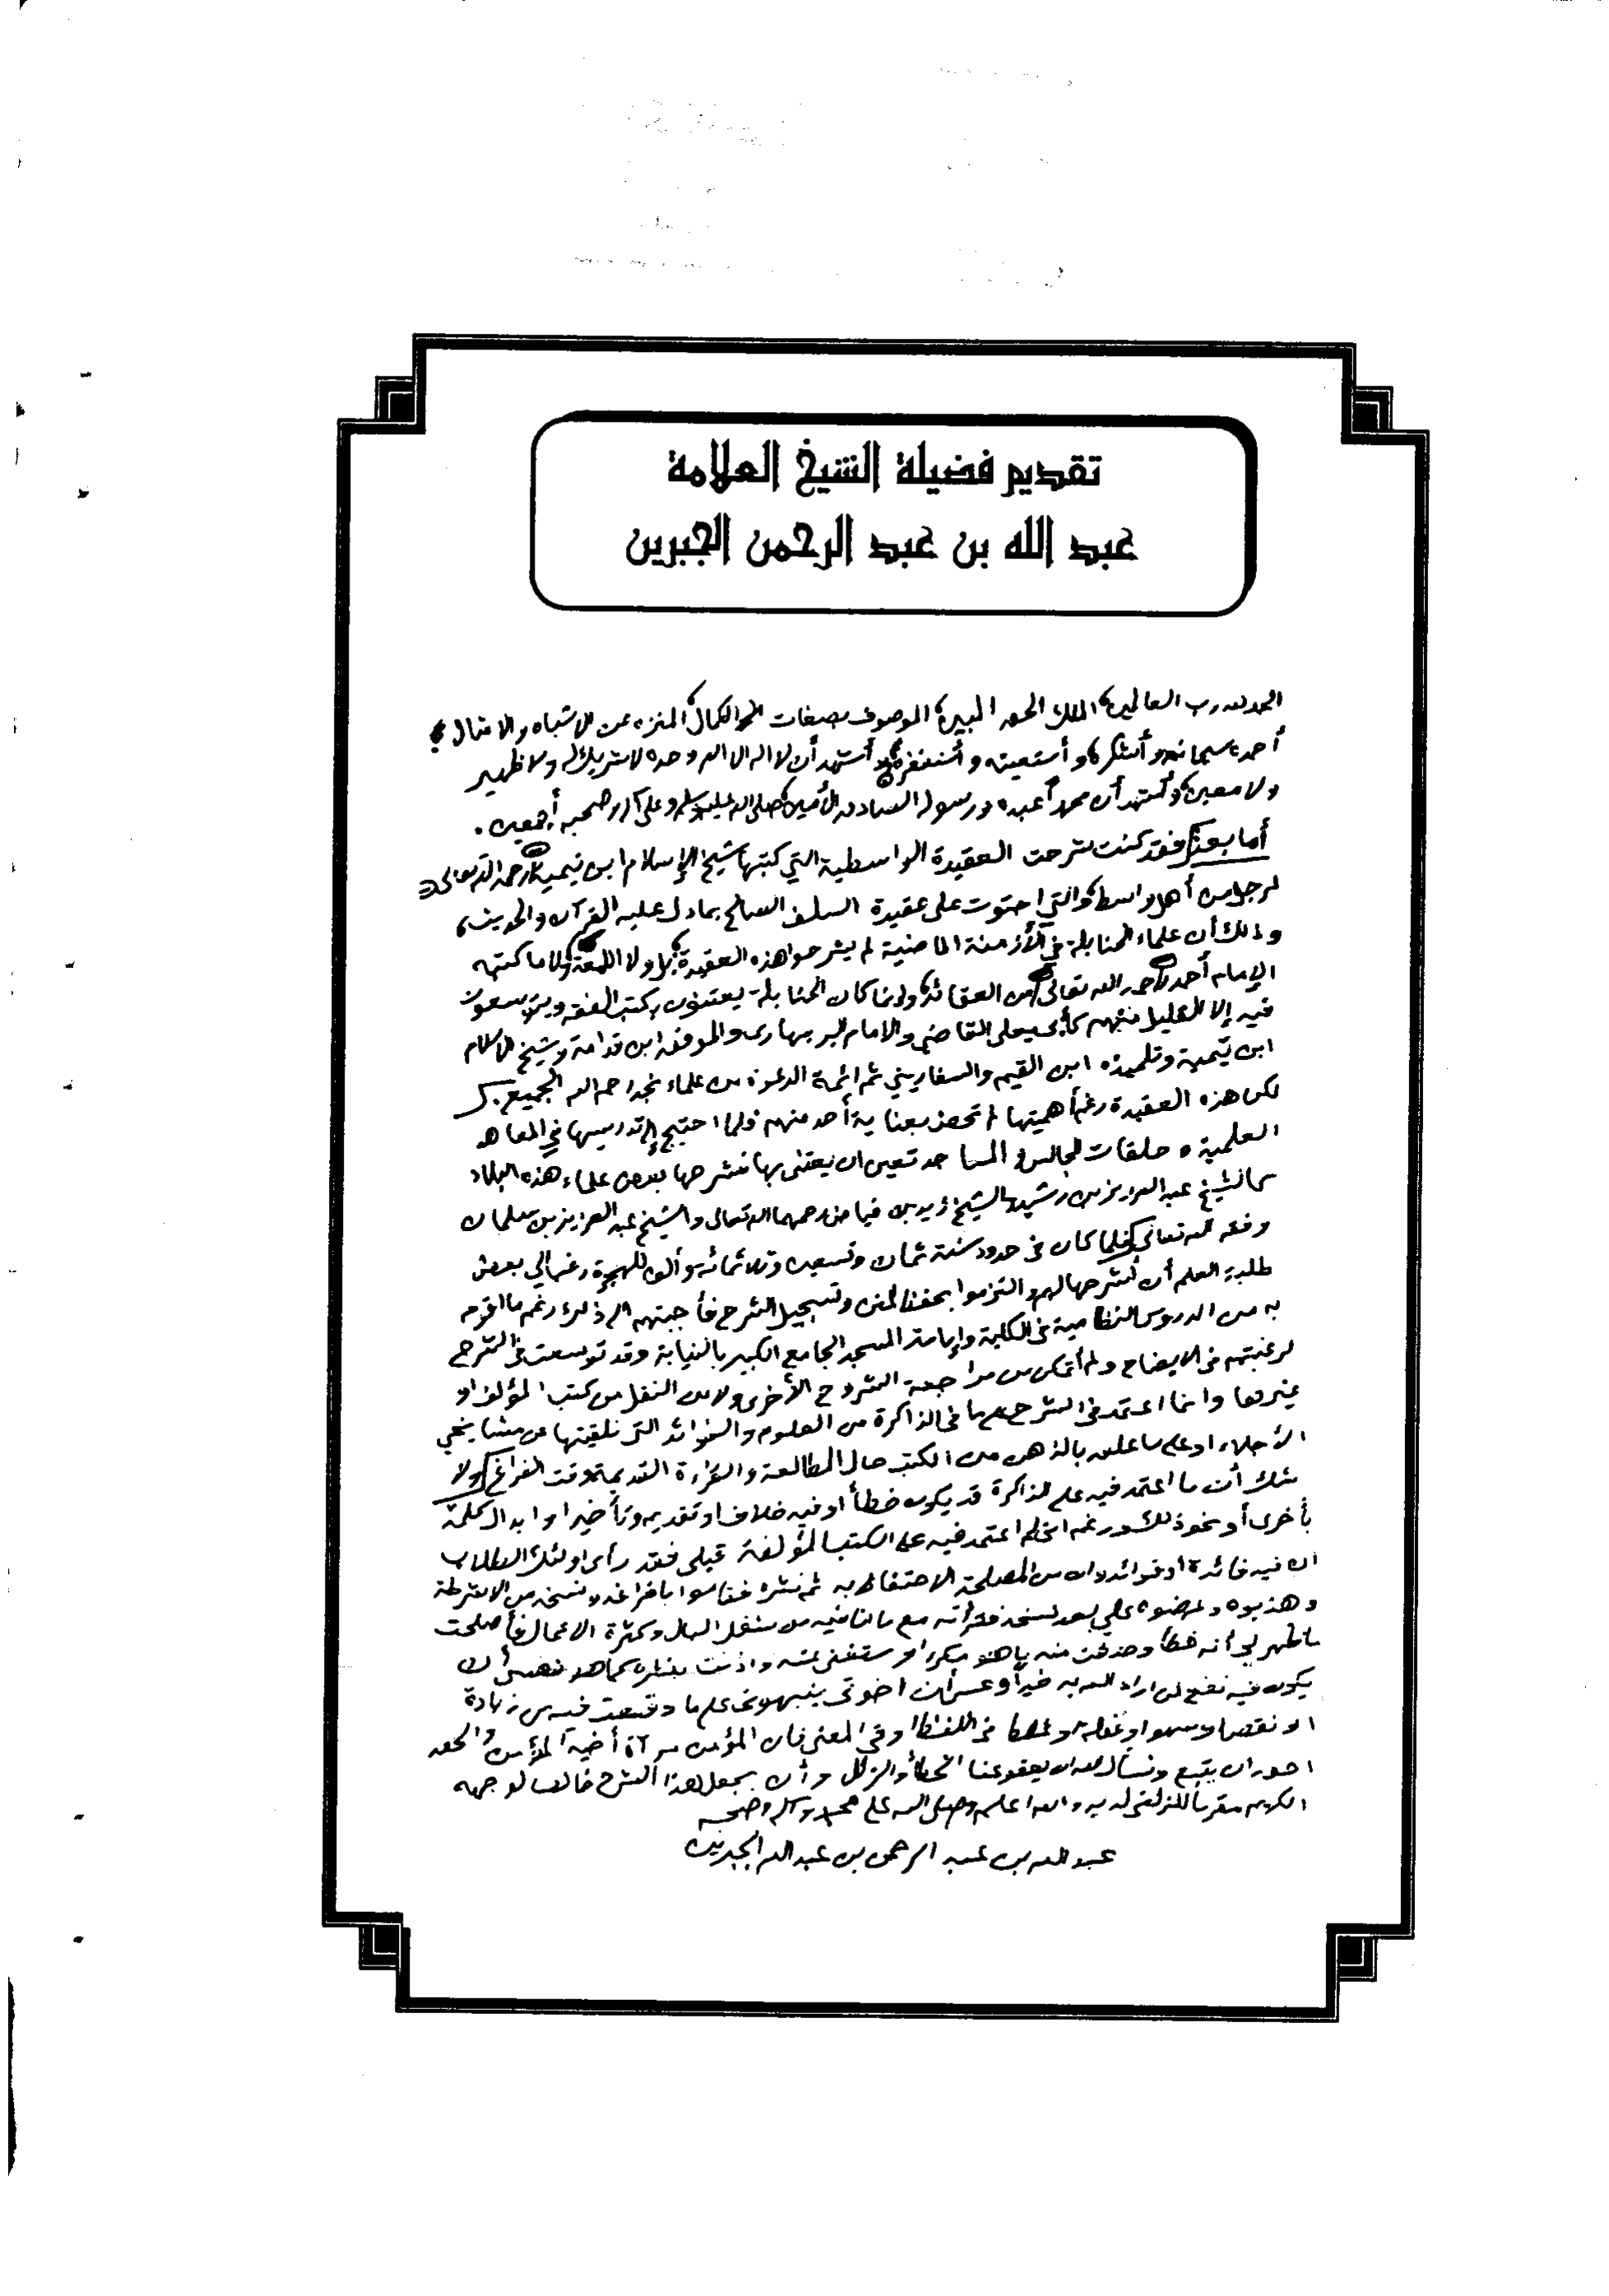 تقديم فضيلة الشيخ العلامة
عبد الله بن عبد الرحمن الجبرين
الحمد لله رب العالمين، الملك الحق المبين، الموصوف بصفات الكمال، المنزه عن الأشباه والأمثال،
أحمده سبحانه وأشكره، وأستعينه وأستغفره، وأشهد أن لا إله إلا الله وحده لا شريك له ولا ظهير
ولا معين، وأشهد أن محمداً عبده ورسوله الصادق الأمين، صلى الله عليه وسلم وعلى آله وصحبه أجمعين.
أما بعد: فقد كنت شرحت العقيدة الواسطية التي كتبها شيخ الإسلام ابن تيمية رحمه الله تعالى
لرجل من أهل واسط، والتي احتوت على عقيدة السلف الصالح بما دل عليه القرآن والحديث،
وذلك أن علماء الحنابلة في الأزمنة الماضية لم يشرحوا هذه العقيدة، بل ولا اللمعة، ولا ما كتبه
الإمام أحمد رحمه الله تعالى من العقائد، وإنما كان الحنابلة يعتنون بكتب الفقه ويتوسعون
فيه إلا القليل منهم كأبي يعلى القاضي والإمام البربهاري والموفق ابن قدامة وشيخ الإسلام
ابن تيمية وتلميذه ابن القيم والسفاريني ثم أئمة الدعوة من علماء نجد رحم الله الجميع.
لكن هذه العقيدة رغم أهميتها لم تحض بعناية أحد منهم ولما احتيج إلى تدريسها في المعاهد
العلمية و حلقات المجالس والمساجد تعين ان يعتنى بها فشرحها بعض علماء هذه البلاد
كالشيخ عبد العزيز بن رشيد والشيخ زيد بن فياض رحمهما الله تعالى والشيخ عبد العزيز بن سلمان
وفقه الله تعالى فلما كان في حدود سنة ثمان وتسعين وثلاثمائة وألف للهجرة رغب الي بعض
طلبة العلم أن أشرحها لهم والتزموا بحفظ المتن وتسجيل الشرح فأجبتهم الى ذلك رغم ما اقوم
به من الدروس النظامية في الكلية وإمامة المسجد الجامع الكبير بالنيابة وقد توسعت في الشرح
لرغبتهم في الايضاح ولم أتمكن من مراجعة الشروح الأخرى ولا من النقل من كتب المؤلف او
غيرها وانما اعتمد في الشرح على ما في الذاكرة من العلوم والفوائد التي تلقيتها عن مشايخي
الأجلاء او على ما علق بالذهن من الكتب حال المطالعة والقراءة القديمة وقت الفراغ ولا
شك أن ما اعتمد فيه على الذاكرة قد يكون خطأ او فيه خلاف او تقديم وتأخير او ابدال كلمة
بأخرى أو نحو ذلك ورغم اني لم اعتمد فيه على الكتب المؤلفة قبلي فقد رأى اولئك الطلاب
ان فيه فائدة او فوائد وان من المصلحة الاحتفاظ به ثم نشره فقاموا بافراغه ونسخه من الاشرطة
وهذبوه وعرضوه علي بعد نسخه فقرأته مع ما انا فيه من شغل البال وكثرة الاعمال فأصلحت
ما ظهر لي أنه خطأ وحذفت منه ما هو مكرر او مستغنى عنه واذنت بنشره كما هو فعسى أن
يكون فيه نفع لمن اراد الله به خيراً وعسى أن اخوتي ينبهوني على ما وقعت فيه من زيادة
او نقص او سهو او غفلة او غلط في اللفظ او في المعنى فان المؤمن مرآة أخيه المؤمن والحق
احق ان يتبع ونسأل الله ان يعفو عنا الخطأ والزلل وأن يجعل هذا الشرح خالصا لوجهه
الكريم مقرباً للزلفى لديه والله اعلم وصلى الله على محمد وآله وصحبه
عبد الله بن عبد الرحمن بن عبد الله الجبرين